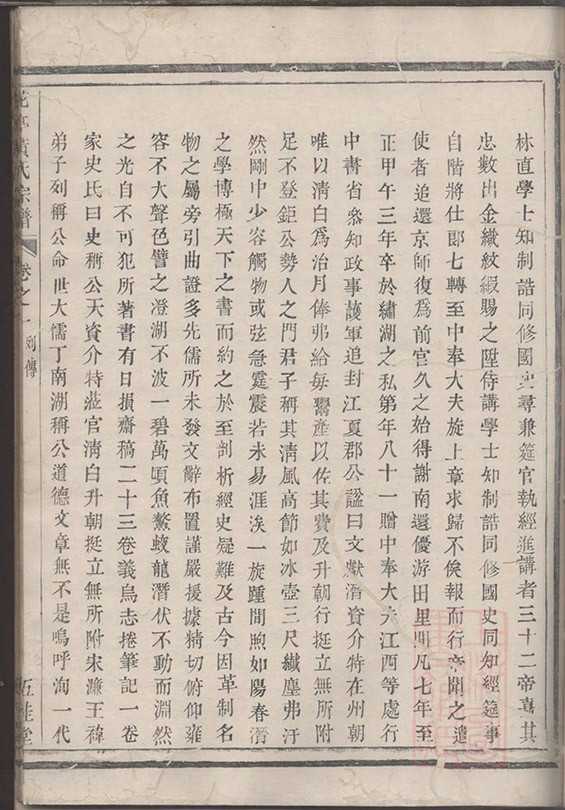 林直學士知制誥同修國史尋兼筵官執經進講者三十二帝喜其
忠數出金織紋緞賜之陞侍講學士知制誥同修國史同知經筵事
自階將仕郎七轉至中奉大夫旋上章求歸不俟報而行帝聞之遣
使者追還京師復爲前官久之始得謝南還優游田里間凡七年至
正甲午三年卒於繡湖之私第年八十一贈中奉大夫江西等處行
中書省叅知政事護軍追封江夏郡公謚曰文獻潛資介特在州朝
唯以淸白爲治月俸弗給每鬻產以佐其費及升朝行挺立無所附
足不登鉅公勢人之門君子稱其淸風高節如冰壺三尺纎塵弗汙
然剛中少容觸物或弦急霆震若未易涯涘一旋踵間煦如陽春潛
之學博極天下之書而約之於至剖析經史疑難及古今因革制名
物之屬旁引曲證多先儒所未發文辭布置謹嚴援據精切俯仰雍
容不大聲色譬之澄湖不波一碧萬頃魚鱉蛟龍潛伏不動而淵然
之光自不可犯所著書有日損齋稿二十三卷義烏志捲筆記一卷
家史氏曰史稱公天資介特蒞官淸白升朝挺立無所附宋濂王褘
弟子列稱公命世大儒丁南湖稱公道德文章無不是嗚呼洵一代
黃氏宗譜
卷之一列傳
五桂堂